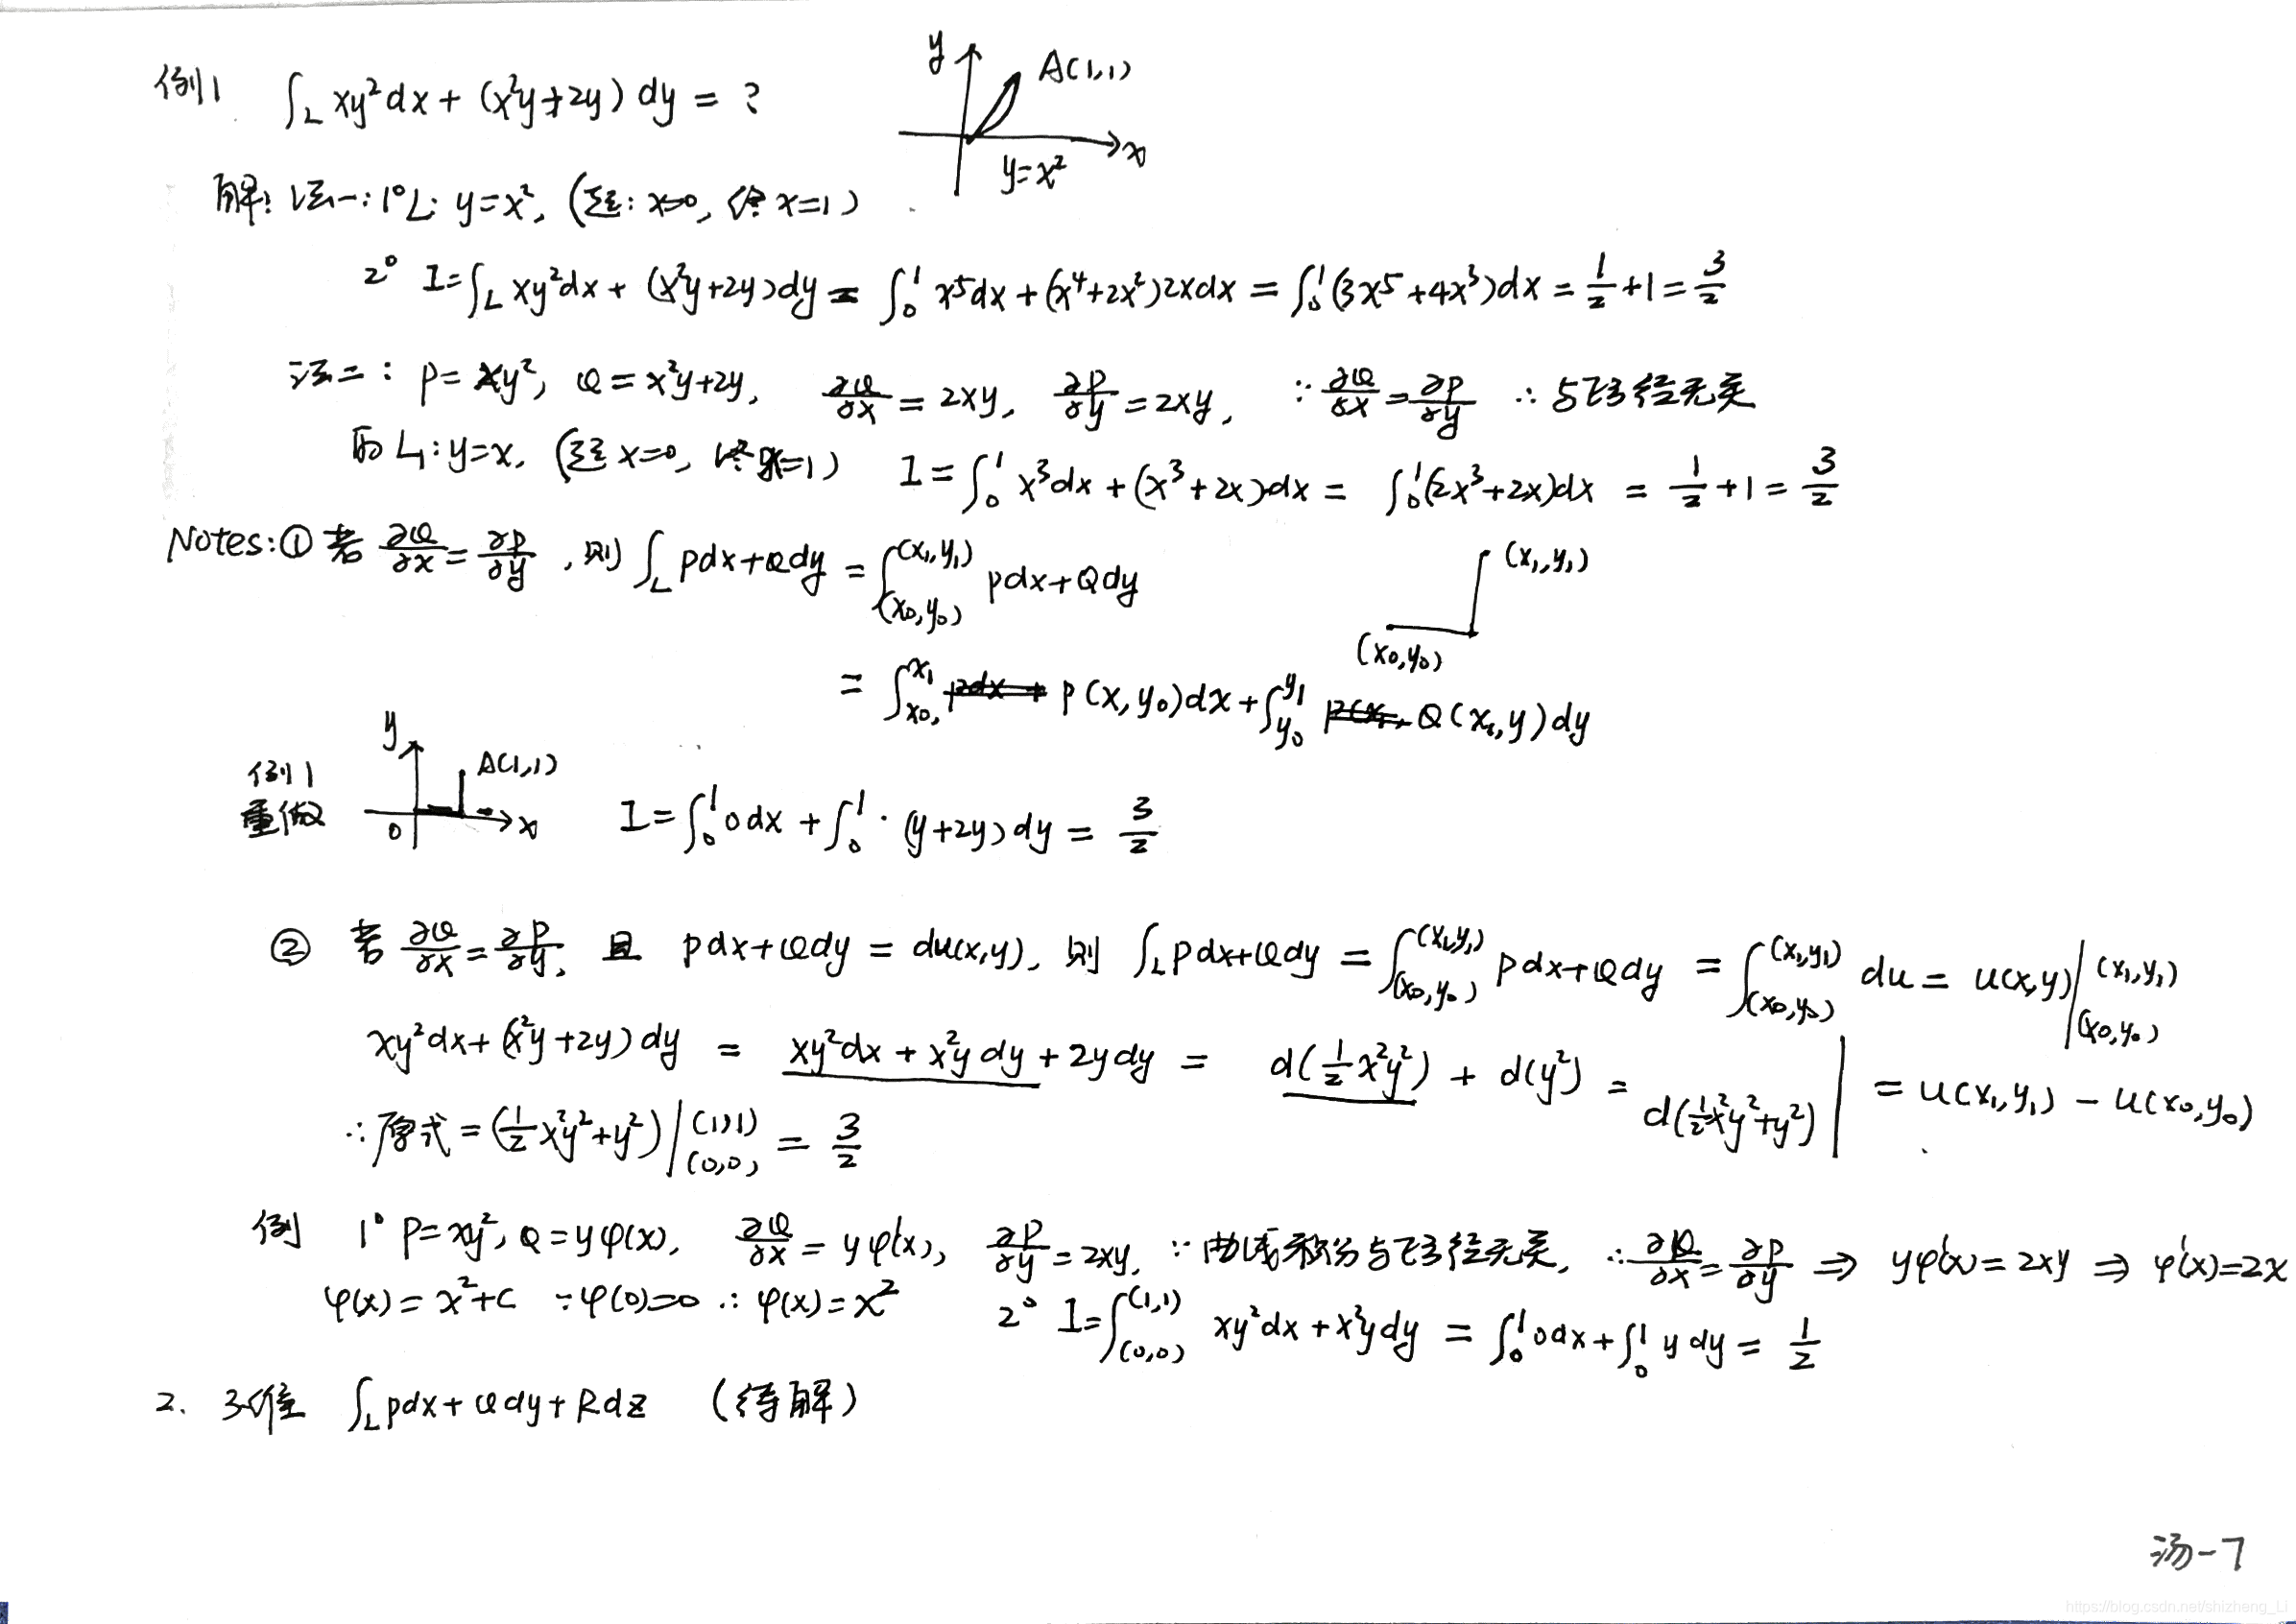 例1 ∫_L xy²dx + (x²y+2y) dy = ?
y A(1,1)
x
y=x²
解: 法一: 1° L: y=x², (起: x=0, 终 x=1)
2° I=∫_L xy²dx + (x²y+2y)dy = ∫₀¹ x⁵dx + (x⁴+2x²)2xdx = ∫₀¹(3x⁵+4x³)dx = 1/2+1 = 3/2
法二: P=xy², Q=x²y+2y, ∂Q/∂x = 2xy, ∂P/∂y = 2xy, ∵ ∂Q/∂x = ∂P/∂y ∴ 与路径无关
而 L₁: y=x, (起 x=0, 终 x=1) I=∫₀¹ x³dx + (x³+2x)dx = ∫₀¹(2x³+2x)dx = 1/2+1 = 3/2
Notes: ① 若 ∂Q/∂x = ∂P/∂y, 则 ∫_L Pdx+Qdy = ∫_(x₀,y₀)^(x₁,y₁) Pdx+Qdy
(x₁,y₁)
(x₀,y₀)
= ∫_x₀^x₁ P(x,y₀)dx + ∫_y₀^y₁ Q(x₁,y)dy
例1
重做
y A(1,1)
0 x
I=∫₀¹ 0dx + ∫₀¹ · (y+2y)dy = 3/2
② 若 ∂Q/∂x = ∂P/∂y, 且 Pdx+Qdy = du(x,y), 则 ∫_L Pdx+Qdy = ∫_(x₀,y₀)^(x₁,y₁) Pdx+Qdy = ∫_(x₀,y₀)^(x₁,y₁) du = u(x,y)|_(x₀,y₀)^(x₁,y₁)
= u(x₁,y₁) − u(x₀,y₀)
xy²dx+(x²y+2y)dy = xy²dx + x²ydy + 2ydy = d(½x²y²) + d(y²) = d(½x²y²+y²)
∴原式 = (½x²y²+y²)|_(0,0)^(1,1) = 3/2
例 1° P=xy², Q=yφ(x), ∂Q/∂x = yφ'(x), ∂P/∂y = 2xy, ∵ 曲线积分与路径无关, ∴ ∂Q/∂x = ∂P/∂y ⇒ yφ'(x) = 2xy ⇒ φ'(x)=2x
φ(x) = x²+C ∵φ(0)=0 ∴ φ(x)=x² 2° I=∫_(0,0)^(1,1) xy²dx + x²ydy = ∫₀¹ 0dx + ∫₀¹ y dy = 1/2
2. 3维 ∫_L Pdx+Qdy+Rdz (待解)
汤-7
https://blog.csdn.net/shizheng_Li